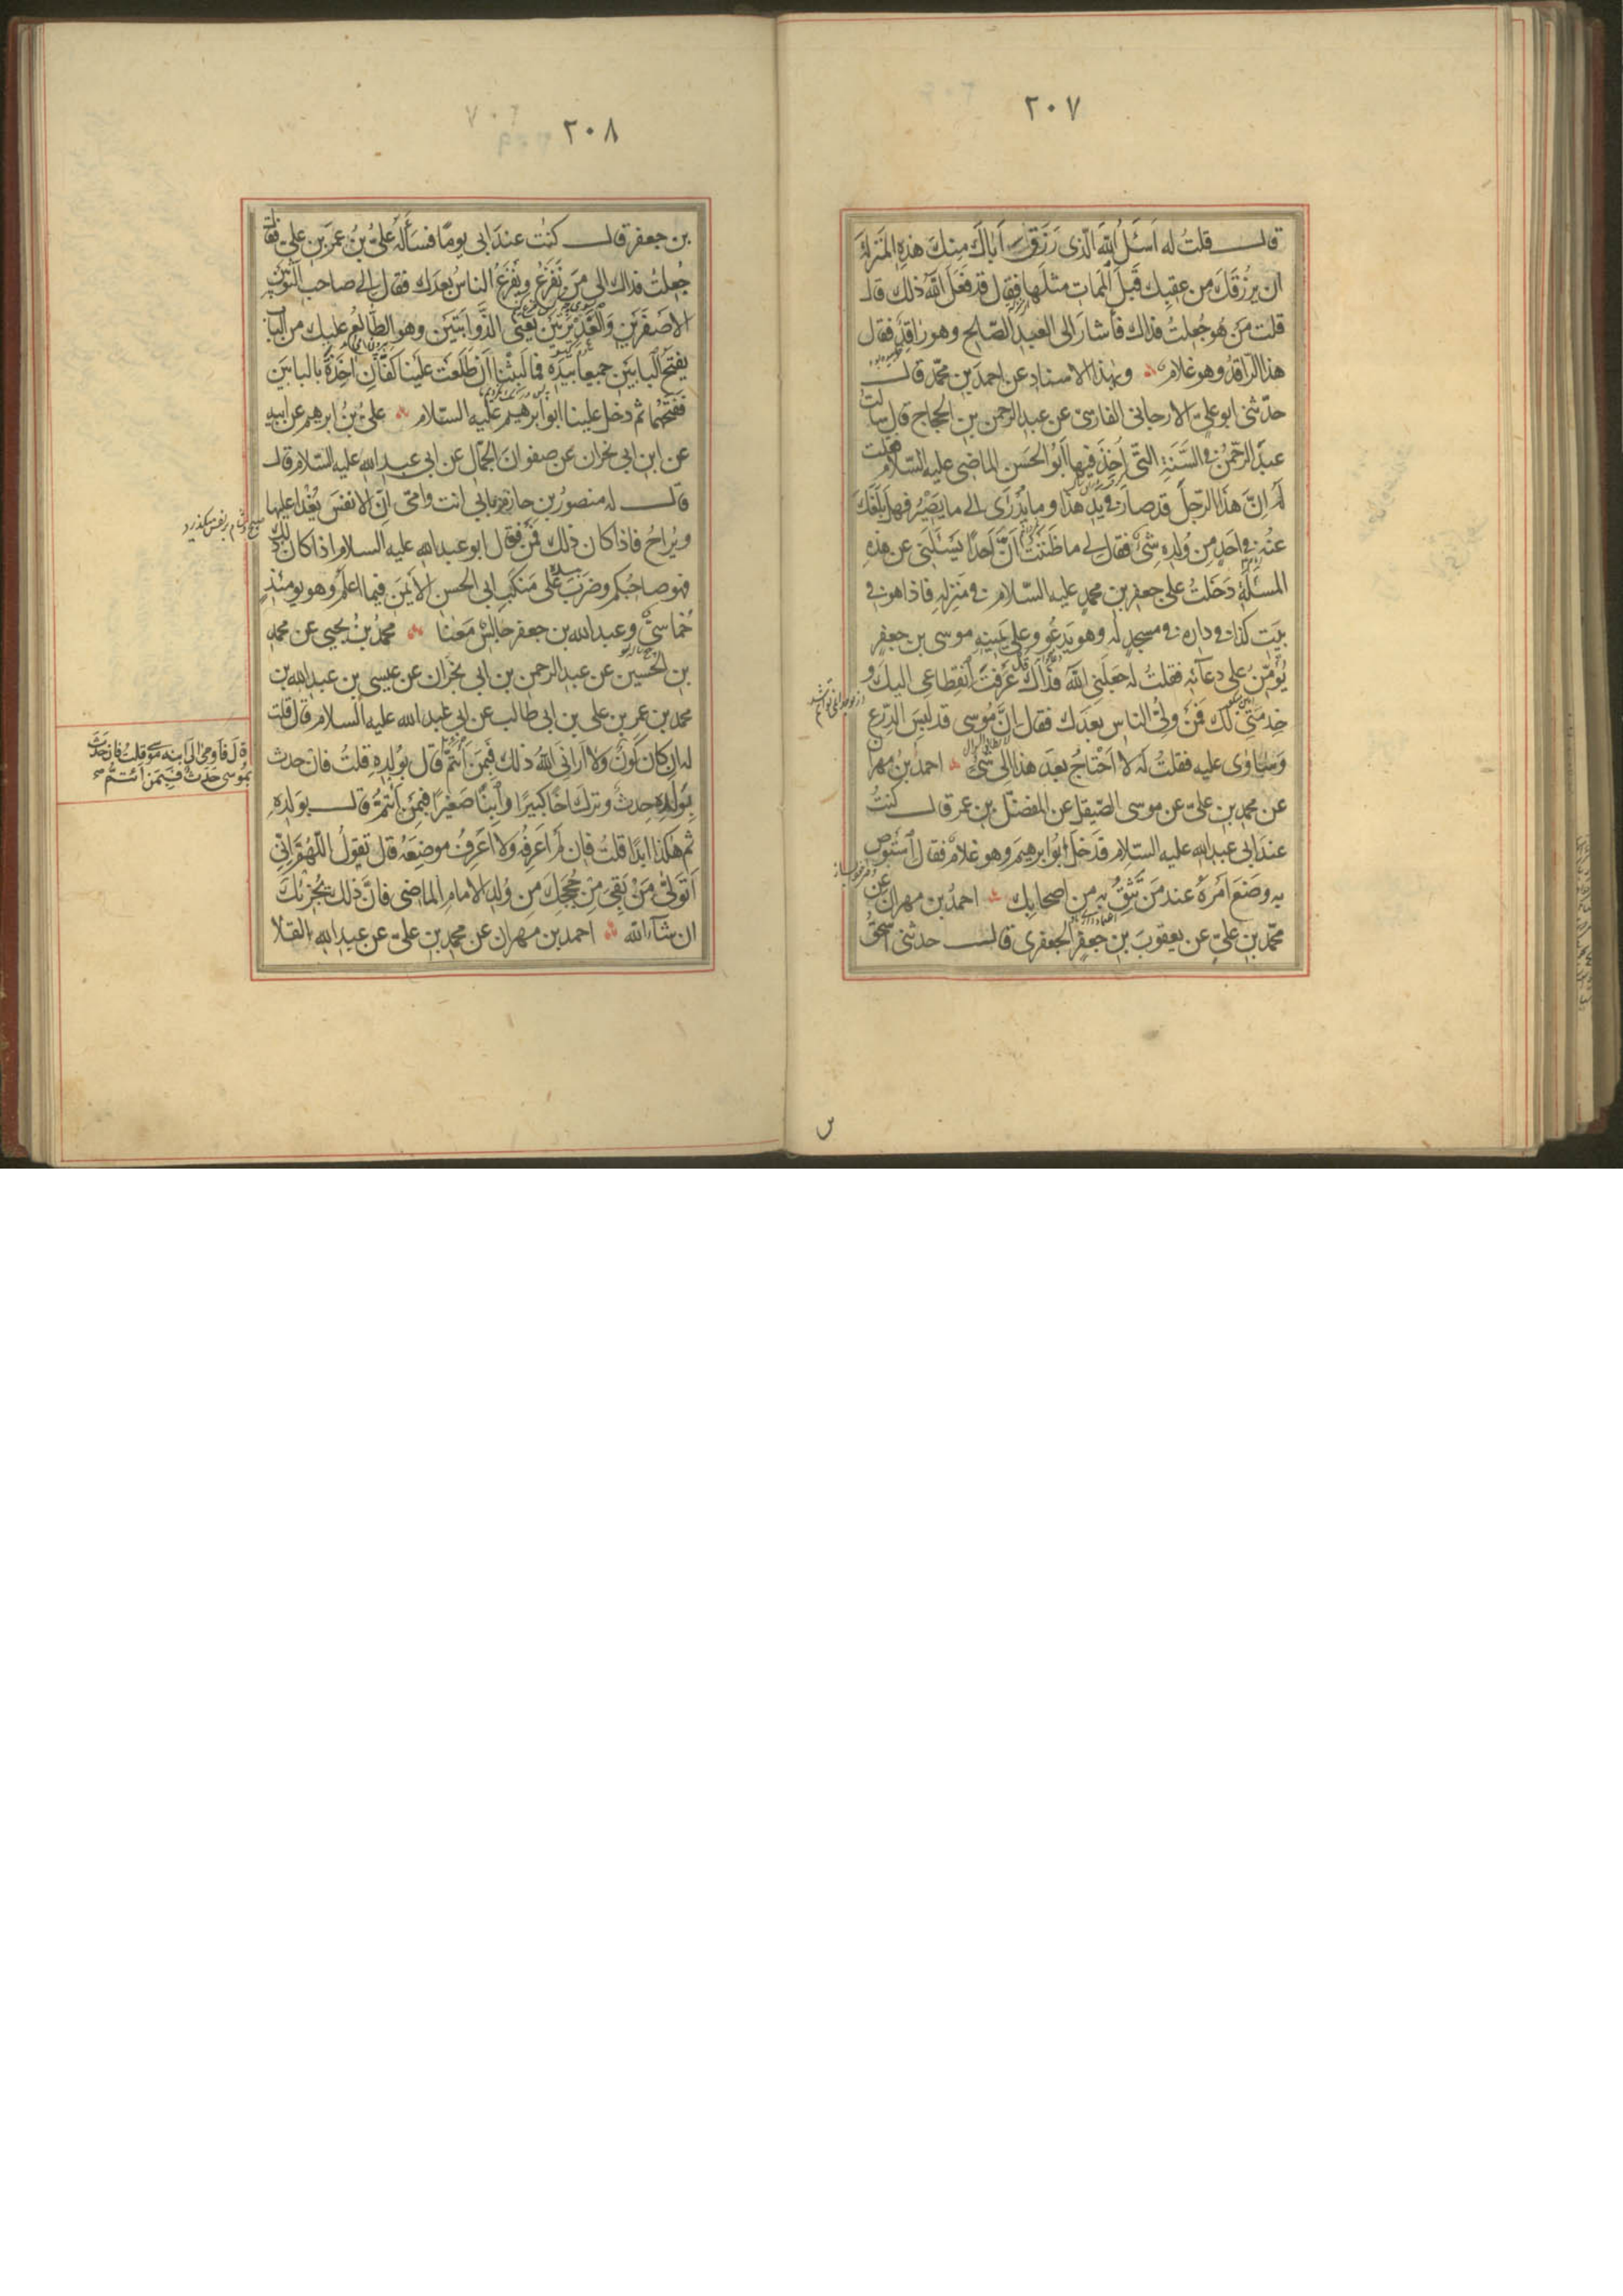 ٢٠٧
قال قلتُ له اَسئَلُ اللّهَ الّذى رَزَقَ اَباكَ مِنكَ هذِهِ المَنزلةَ
ان يرزُقَكَ مِن عقِبِك قَبلَ المَمات مثلَها فقال قد فَعَلَ اللّه ذلك قال
قلت مَن هو جُعِلتُ فداك فأشار الى العبدِ الصّالح وهو راقِدٌ فقال
هذا الراقدُ وهو غلام وبهذا الاسنادِ عن احمدَ بنِ محمّد قال
حدّثنى ابو علىّ الارجانى الفارسىّ عن عبد الرحمن بن الحجاج قال سالت
عبدَ الرّحمن فى السَّنَةِ التّى اُخِذَ فيها اَبُو الحَسَنِ الماضى عليه السّلام فقلت
له اِنّ هذا الرّجلَ قد صار فى يدِ هذا وما يُدرٰى الى ما يَصيْرُ فهل بَلَغَكَ
عنُه فى اَحدٍ مِن وُلدِهِ شئٌ فقال لى ما ظَنَنتُ اَنَّ اَحدًا يَسئَلُنى عن هذِهِ
المسئلَةِ دَخَلتُ على جعفر بن محمدٍ عليه السّلام فى مَنزِلِهِ فاذا هو فى
بَيتٍ كذا فى دارِه فى مسجدٍ له وهو يَدعُو وعلى يَمينِهِ موسى بن جعفر
يُؤَمّنُ على دعآئه فقلتُ له جَعَلَنِى اللّه فداك قد عَرَفتَ انقِطاعى اليك و
خِدمَتى لَك فَمَن ولىُّ الناس بعدَك فقال اِنَّ مُوسى قد لَبِسَ الدِّرع
وَسٰاوى عليه فقلتُ له لا اَحْتاجُ بعدَ هذا الى شئ احمدُ بن مهران
عن محمد بن علىّ عن موسى الصّيقل عن المفضّل بن عمر قال كنتُ
عند ابى عبد اللّه عليه السّلام فدَخَل اَبُو ابرهيمَ وهو غلامٌ فقال اَستَوصِ
به وضَع اَمرَهُ عند مَن تَثِقُ به مِن اصحابِك احمدُ بن مهران عن
محمّد بن علىّ عن يعقوبَ بن جعفر الجعفرى قال حدثنى اسحٰقُ
٢٠٨
بن جعفر قال كنت عند ابى يومًا فسَأَلَهُ علىُّ بنُ عُمَرَ بنِ علىّ فقال
جُعِلتُ فداك الى مَن نَفزَعُ ويَفزَعُ الناسُ بعدَك فقال الى صاحب الثوبَين
الاصفَرَينِ والغَديْرَتَينِ يَعنى الذُّوابَتَين وهو الطَّالِعُ عليك من الباب
يفتَحُ البابَين جميعًا بيَدِهِ فما لَبِثْنا اَنْ طَلَعَت علَينا كَفّانِ اٰخِذَةٌ بالبابَين
ففَتَحَهُما ثم دخل علينا ابو ابرهيم عليه السّلام علىُّ بنُ ابرهيم عن ابيه
عن ابن ابى نجران عن صفوانَ الجمّال عن ابى عبد اللّه عليه السّلام قال
قال له منصورُ بن حازم بابى انت وامّى اِنّ الانفسَ يُغْدا عليها
ويُراحُ فاذا كان ذلك فَمَن فقال ابو عبد اللّه عليه السلام اذا كان ذلك
فهو صاحبُكم وضَرَبَ بيده على مَنكِبِ ابى الحسن الأيمَنِ فيما اعلَم وهو يومَئذٍ
خُماسىٌّ وعبد اللّه بن جعفر جالِسٌ مَعَنا محمدُ بنُ يحيى عن محمد
بن الحسين عن عبد الرحمن بن ابى نجران عن عيسى بن عبد اللّه بن
محمد بن عمر بن على بن ابى طالب عن ابى عبد اللّه عليه السلام قال قلت
له ان كان كَونٌ ولا اَرانى اللّهُ ذلك فبِمَن اَئتمُّ قال بوُلدِهِ قلتُ فان حدث
قال فاَومٰى الى ابنه موسى قلت فان حَدَثَ
بمُوسى حَدَث فبِمَن اَئتمّ
بوَلَدِهِ حدثٌ وترك اخًا كبيرًا وابنًا صَغيرًا فبِمَن اَئتمُّ قال بوَلَدِهِ
ثم هكذا ابدًا قلتُ فان لم اَعرِفهُ ولا اَعرِفُ موضِعَهُ قال تقولُ اللّهُمَّ اِنّى
اَتَولّٰى مَنْ بَقِىَ مِنْ حُجَجِكَ مِن وُلدِ الامامِ الماضى فانّ ذلك يُجزِئكَ
ان شآء اللّه احمد بن مهران عن محمد بن علىّ عن عبد اللّه القلا